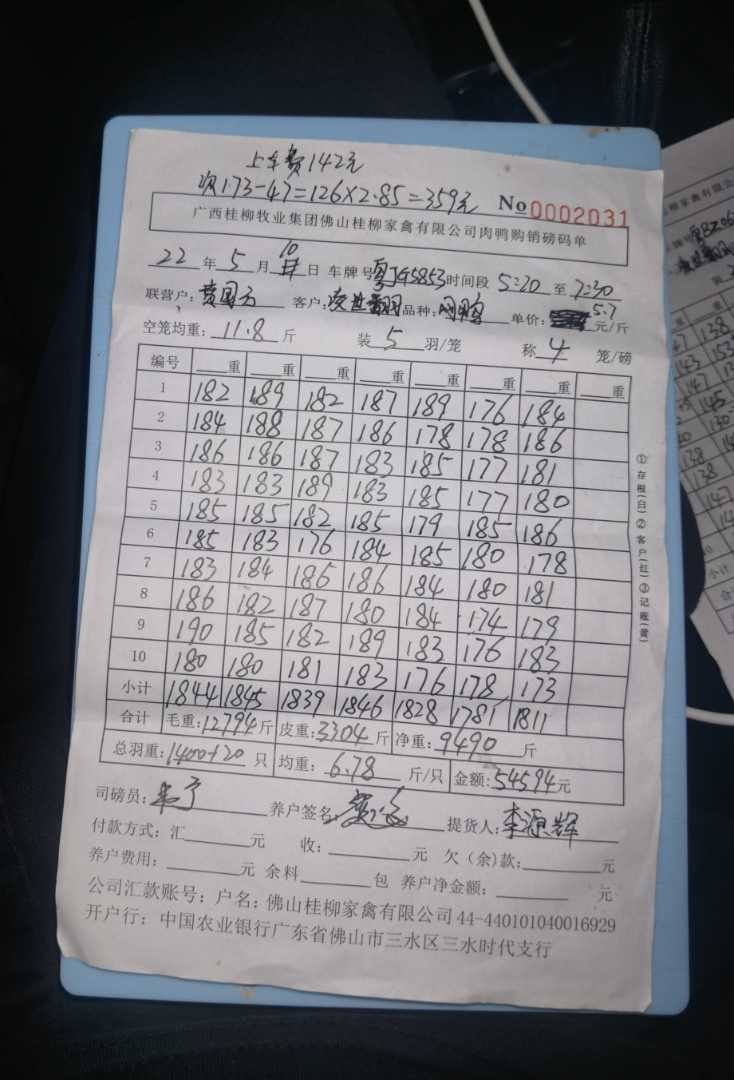 上车费142元
次173-47=126×2.85=359元
No 0002031
广西桂柳牧业集团佛山桂柳家禽有限公司肉鸭购销磅码单
22年5月10日 车牌号 粤JG5853 时间段 5:20 至 7:30
联营户: 客户: 品种: 单价: 5.7 元/斤
空笼均重: 11.8 斤 装 5 羽/笼 称 4 笼/磅
编号 重 重 重 重 重 重 重 重
1 182 189 182 187 189 176 184
2 184 188 187 186 178 178 186
3 186 186 187 183 185 177 181
4 183 183 189 183 185 177 180
5 185 185 182 185 179 185 186
6 185 183 176 184 185 180 178
7 183 184 186 186 184 180 181
8 186 182 187 180 184 174 179
9 190 185 182 189 183 176 183
10 180 180 181 183 176 178 173
小计 1844 1845 1839 1846 1828 1781 1811
合计 毛重: 12794 斤 皮重: 3304 斤 净重: 9490 斤
总羽重: 1400+20 只 均重: 6.78 斤/只 金额: 54594 元
司磅员: 养户签名: 提货人: 李源辉
付款方式: 汇 元 收: 元 欠(余)款: 元
养户费用: 元 余料 包 养户净金额: 元
公司汇款账号: 户名: 佛山桂柳家禽有限公司 44-440101040016929
开户行: 中国农业银行广东省佛山市三水区三水时代支行
①存根(白)②客户(红)③记账(黄)